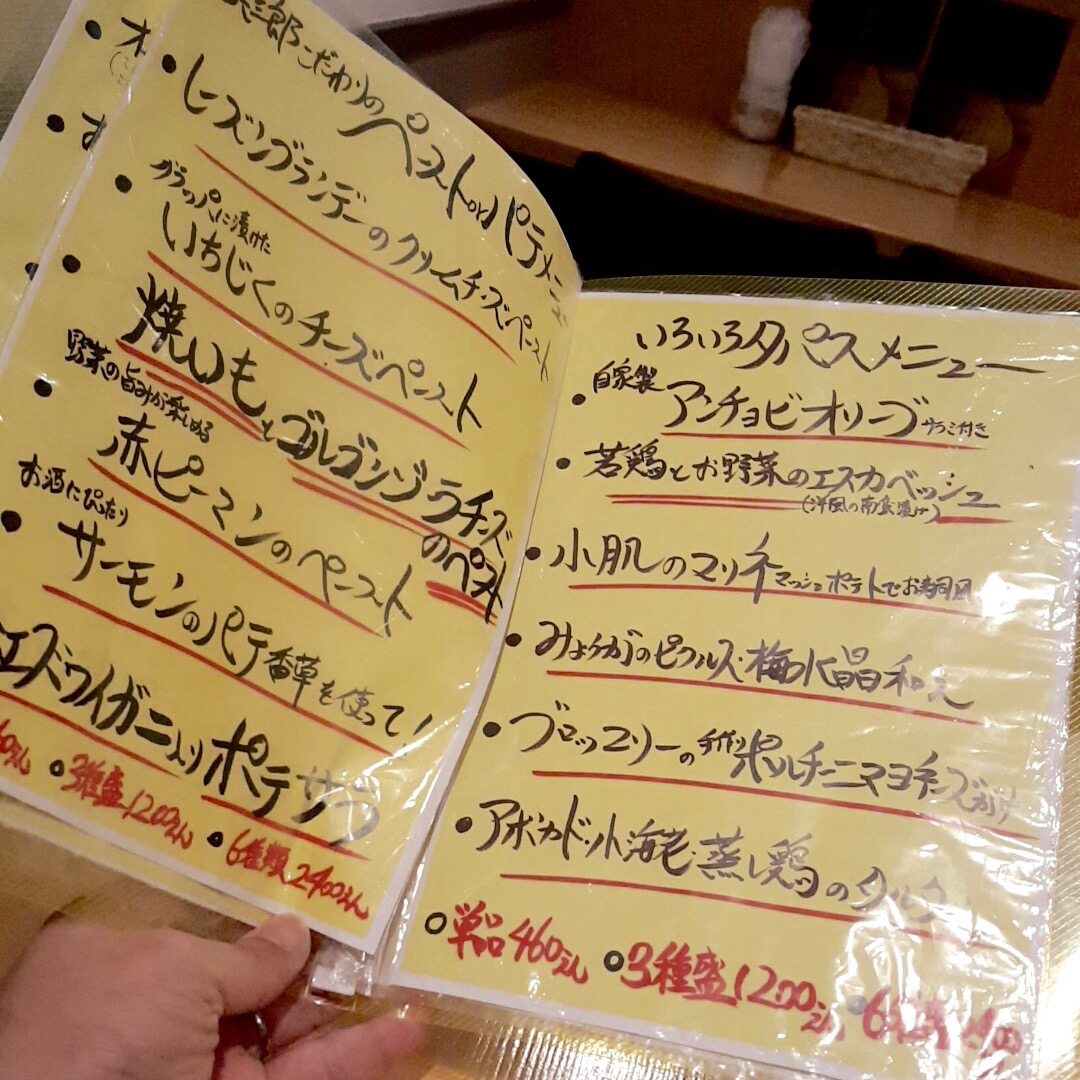 三郎こだわりのペーストorパテメニュ
レーズングランデーのクリームチーズペースト
グラッパに漬けた
いちじくのチーズペースト
焼いもとゴルゴンゾラチーズのペースト
野菜の旨みが楽しめる
赤ピーマンのペースト
お酒にぴったり
サーモンのパテ香草を使って!
ズワイガニ入りポテサラ
60えん ○3種盛1200えん ○6種類2400えん
いろいろタパスメニュー
自家製
アンチョビオリーブ サラミ付き
若鶏とお野菜のエスカベッシュ
(洋風の南蛮漬け)
小肌のマリネ マッシュポテトでお寿司風
みょうがのピクルス 梅水晶和え
ブロッコリーの手作りポルチーニマヨチーズがけ
アボカド・小海老・蒸し鶏のタルタル
○単品460えん ○3種盛1200えん